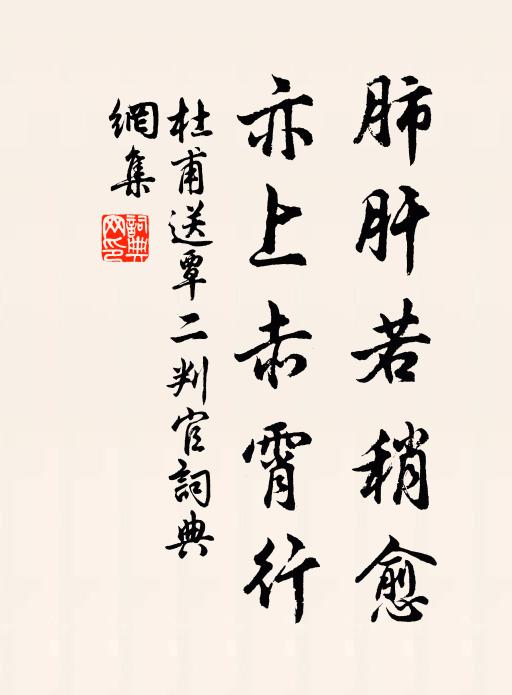 肺肝若稍愈
亦上赤霄行
杜甫送覃二判官詞典
網集
詞典
网印